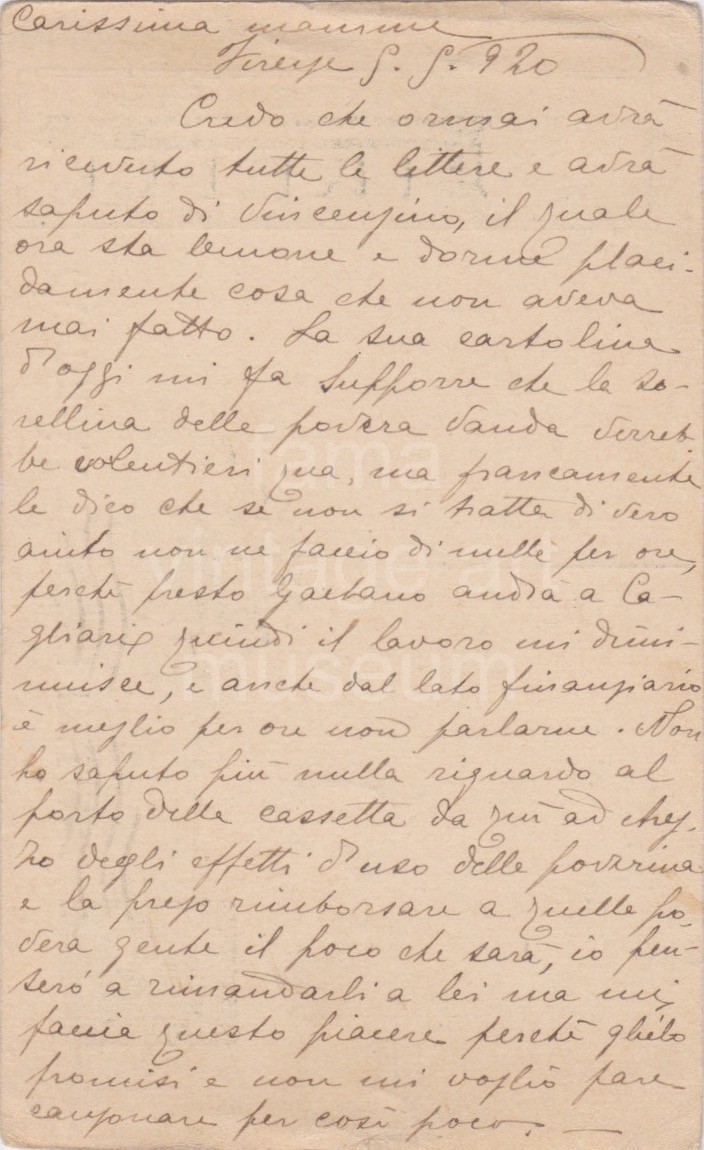 Carissima mamma
Firenze 5. 5. 920
Credo che ormai avrà
ricevuto tutte le lettere e avrà
saputo di Vincenzino, il quale
ora sta benone e dorme placi-
damente cosa che non aveva
mai fatto. La sua cartolina
d'oggi mi fa supporre che la so-
rellina della povera Vanda verreb
be volentieri qua, ma francamente
le dico che se non si tratta di vero
aiuto non ne faccio di nulla per ora,
perchè presto Gaetano andrà a Ca-
gliari quindi il lavoro mi dimi-
nuisce, e anche dal lato finanziario
è meglio per ora non parlarne. Non
ho saputo più nulla riguardo al
porto della cassetta da qui ad Arez.
zo degli effetti d'uso della poverina
e la prego rimborsare a quella po-
vera gente il poco che sarà, io pen-
serò a rimandarli a lei ma mi
faccia questo piacere perchè glielo
promisi e non mi voglio fare
canzonare per così poco. —
fama
vintage art
museum